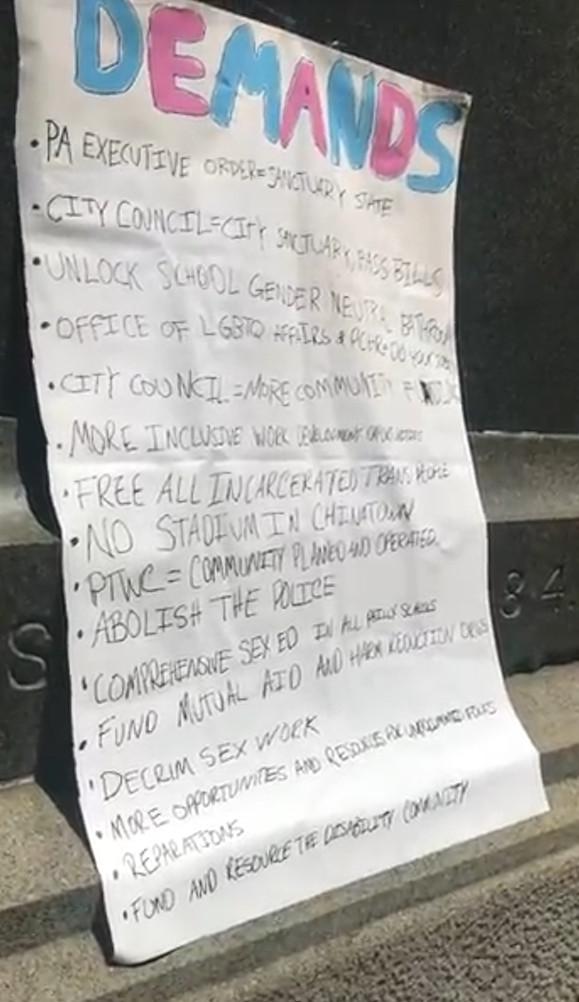 DEMANDS
• PA EXECUTIVE ORDER=SANCTUARY STATE
• CITY COUNCIL=CITY SANCTUARY, PASS BILLS
• UNLOCK SCHOOL GENDER NEUTRAL BATHROOM
• OFFICE OF LGBTQ AFFAIRS & PCHR=DO YOUR JOB
• CITY COUNCIL=MORE COMMUNITY FUNDING
• MORE INCLUSIVE WORK DEVELOPMENT
• FREE ALL INCARCERATED TRANS PEOPLE
• NO STADIUM IN CHINATOWN
• PTWC = COMMUNITY PLANNED AND OPERATED.
• ABOLISH THE POLICE
• COMPREHENSIVE SEX ED IN ALL PHILLY SCHOOLS
• FUND MUTUAL AID AND HARM REDUCTION ORGS
• DECRIM SEX WORK
• MORE OPPORTUNITIES AND RESOURCES FOR UNDOCUMENTED FOLKS
• REPARATIONS
• FUND AND RESOURCE THE DISABILITY COMMUNITY
S
84.